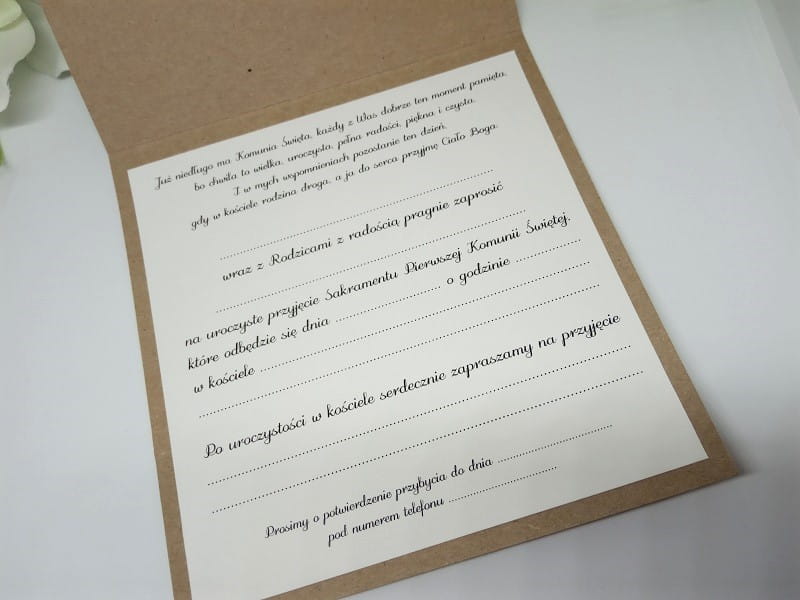 Już niedługo ma Komunia Święta, każdy z Was dobrze ten moment pamięta,
bo chwila to wielka, uroczysta, pełna radości, piękna i czysta.
I w mych wspomnieniach pozostanie ten dzień,
gdy w kościele rodzina droga, a ja do serca przyjmę Ciało Boga.
................................................................
wraz z Rodzicami z radością pragnie zaprosić
................................................................
na uroczyste przyjęcie Sakramentu Pierwszej Komunii Świętej,
które odbędzie się dnia ......................... o godzinie ................
w kościele ................................................................
................................................................
Po uroczystości w kościele serdecznie zapraszamy na przyjęcie
................................................................
................................................................
Prosimy o potwierdzenie przybycia do dnia .........................
pod numerem telefonu .........................